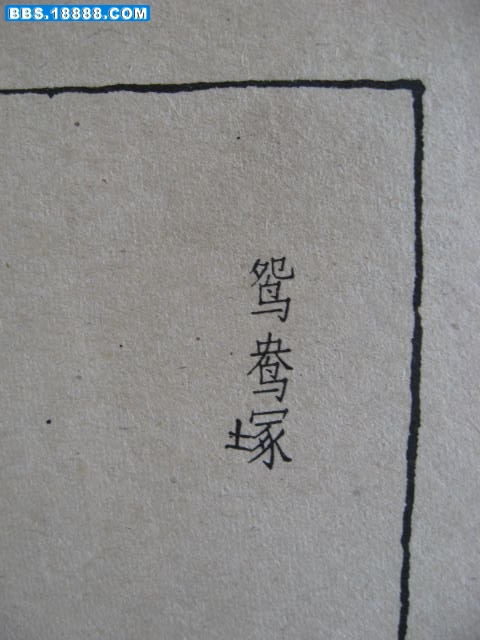 BBS.18888.COM
鸳鸯塚